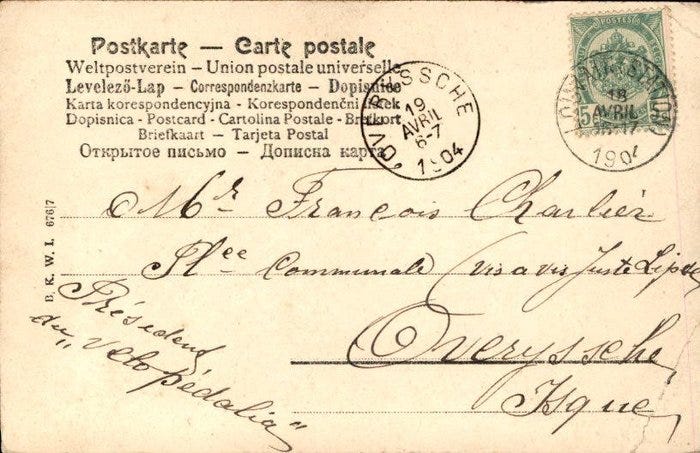 Postkarte — Carte postale
Weltpostverein — Union postale universelle
Levelező-Lap — Correspondenzkarte — Dopisnice
Karta korespondencyjna - Korespondenční lístek
Dopisnica - Postcard - Cartolina Postale - Brefkort
Briefkaart — Tarjeta Postal
Открытое письмо — Дописна карта
OVERYSSCHE
19
AVRIL
6-7
1904
POSTES
5
18
AVRIL
1904
Mr. François Charlier
Plce Communale (vis à vis Juste Lipse
Overyssche
Ysque
Président
du "Velo pédalia"
B. K. W. I. 676/7